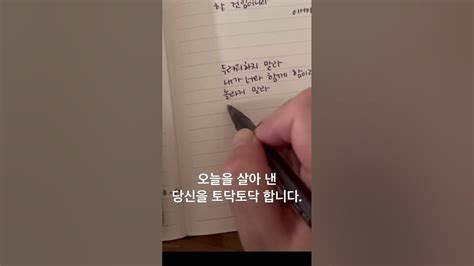 할 것임이니라
이사야
두려워하지 말라
내가 너와 함께 함이라
놀라지 말라
오늘을 살아 낸
당신을 토닥토닥 합니다.